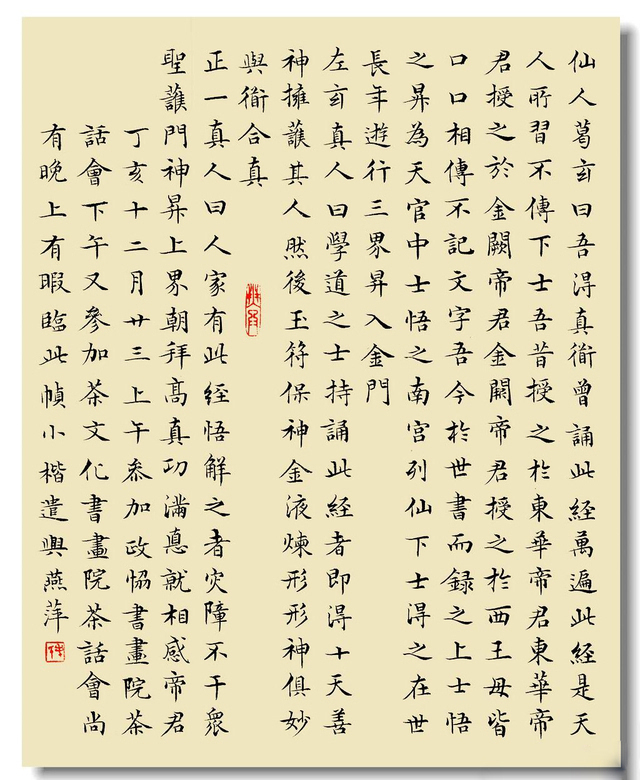 仙人葛玄曰吾淂真衜曾誦此經萬遍此經是天
人所習不傳下士吾昔授之扵東華帝君東華帝
君授之於金闕帝君金闕帝君授之扵西王母皆
口口相傳不記文字吾今扵世書而録之上士悟
之昇為天官中士悟之南宮列仙下士得之在世
長年遊行三界昇入金門
左玄真人曰學道之士持誦此經者即得十天善
神擁護其人然後玉符保神金液煉形形神俱妙
與衜合真
正一真人曰人家有此經悟解之者灾障不干眾
聖護門神昇上界朝拜高真功滿悳就相感帝君
丁亥十二月廿三上午参加政協書畫院茶
話會下午又參加茶文化書畫院茶話會尚
有晚上有暇臨此幀小楷遣興燕萍